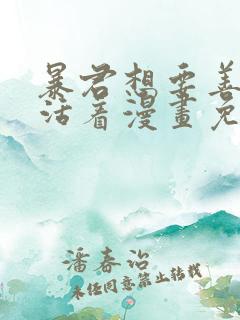 暴君想要善
活看漫畫免
潘春治
未经同意禁止转载